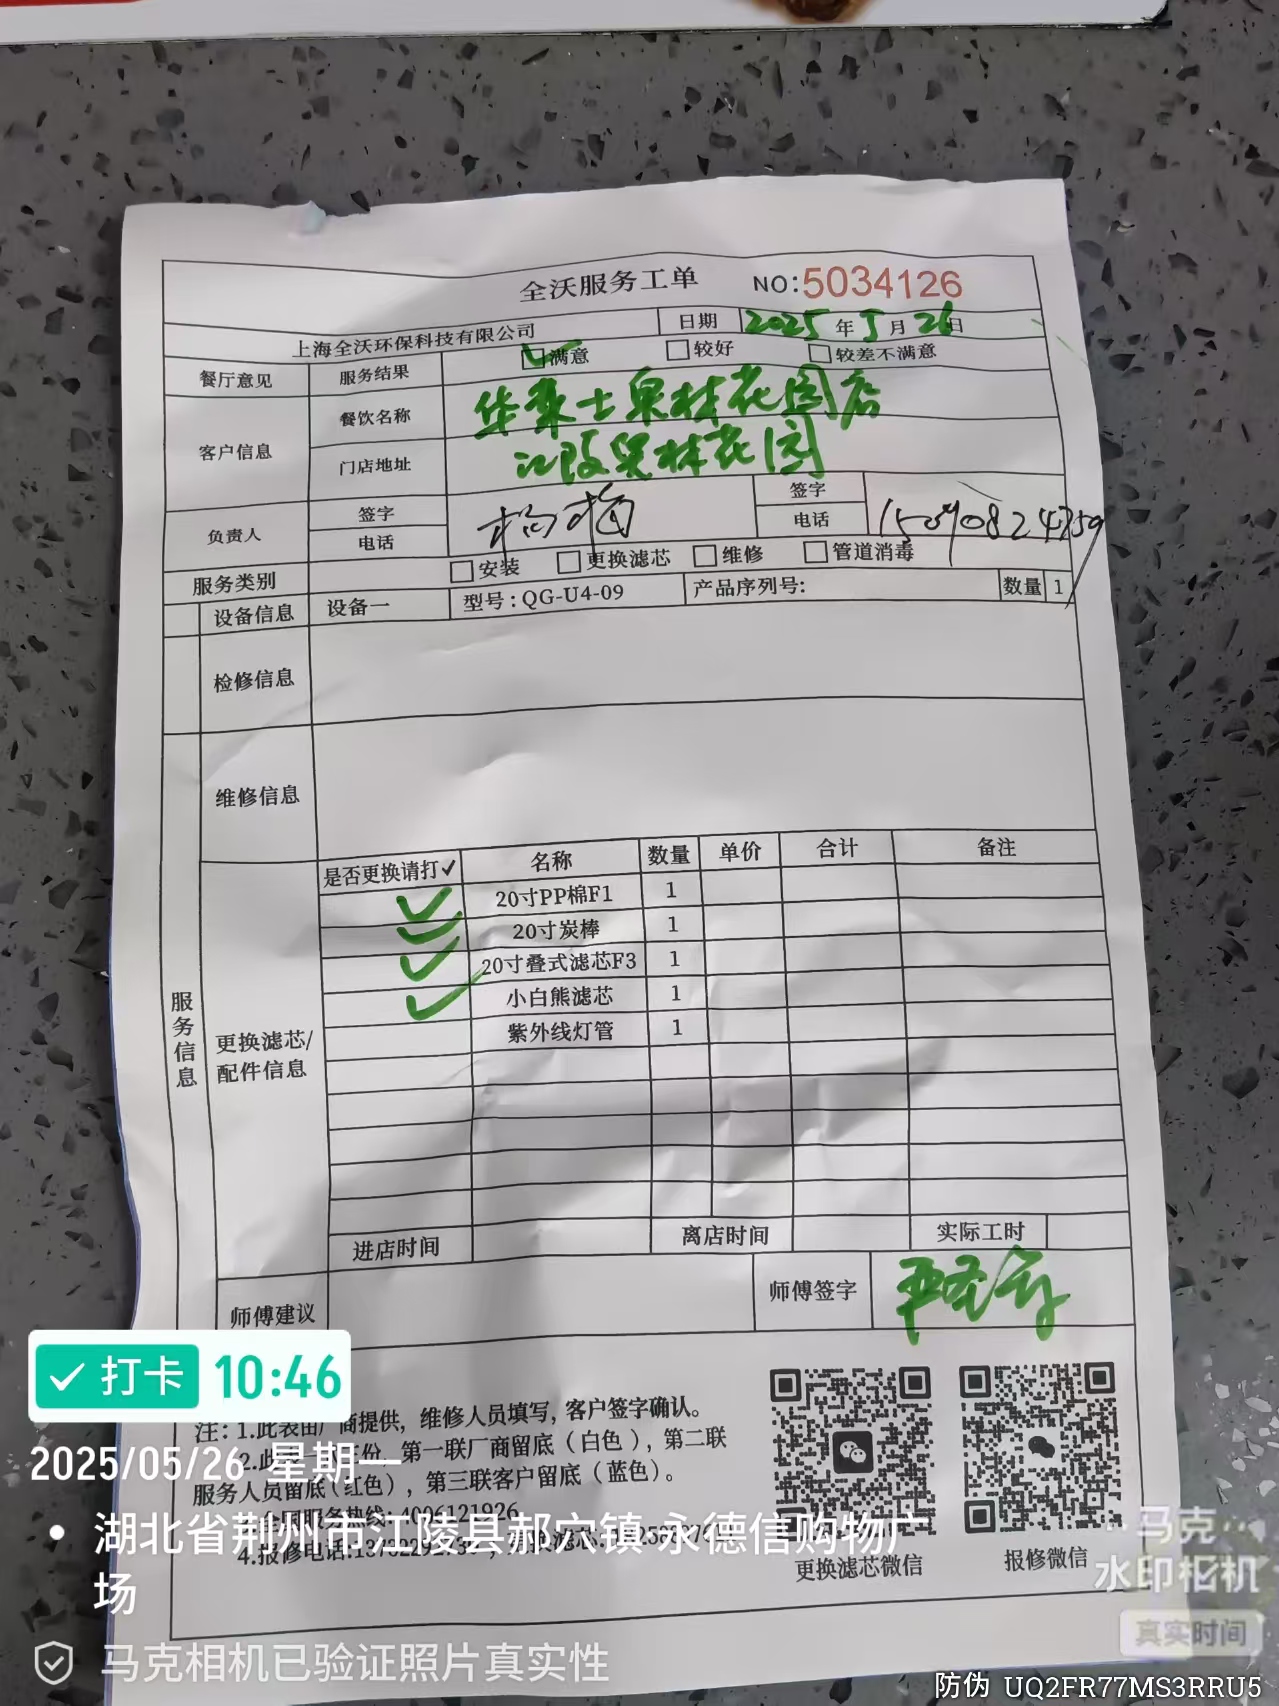 全沃服务工单 NO:5034126
上海全沃环保科技有限公司 日期 2025年5月26日
餐厅意见 服务结果 满意 较好 较差不满意
客户信息 餐饮名称 华莱士泉林花园店
门店地址 江陵 林花园
负责人 签字 杨梅 签字
电话 电话 15090824759
服务类别 安装 更换滤芯 维修 管道消毒
设备信息 设备一 型号:QG-U4-09 产品序列号: 数量 1
检修信息
维修信息
服务信息
更换滤芯/配件信息
是否更换请打✓ 名称 数量 单价 合计 备注
✓ 20寸PP棉F1 1
✓ 20寸炭棒 1
✓ 20寸叠式滤芯F3 1
✓ 小白熊滤芯 1
紫外线灯管 1
进店时间 离店时间 实际工时
师傅建议 师傅签字
注:1.此表由厂商提供,维修人员填写,客户签字确认。
2.此 份,第一联厂商留底(白色),第二联
服务人员留底(红色),第三联客户留底(蓝色)。
全国服务热线:4006121926
4.报修电话:
更换滤芯微信 报修微信
✓打卡 10:46
2025/05/26 星期一
• 湖北省荆州市江陵县郝穴镇·永德信购物广
场
马克相机已验证照片真实性
马克
水印相机
真实时间
防伪 UQ2FR77MS3RRU5